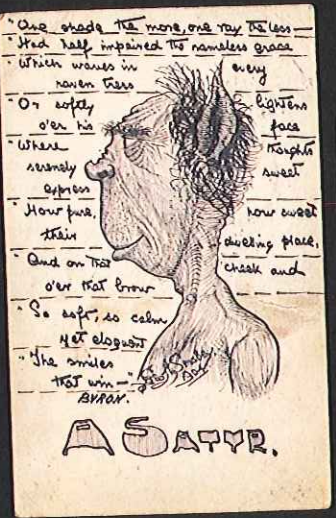 "One shade the more, one ray the less—
"Had half impaired the nameless grace
"Which waves in every
raven tress
"Or softly lightens
o'er his face
"Where thoughts
serenely sweet
express
"How pure, how sweet
their dwelling place,
"And on that cheek and
o'er that brow
"So soft, so calm
yet eloquent
"The smiles
that win—"
BYRON.
A SATYR.